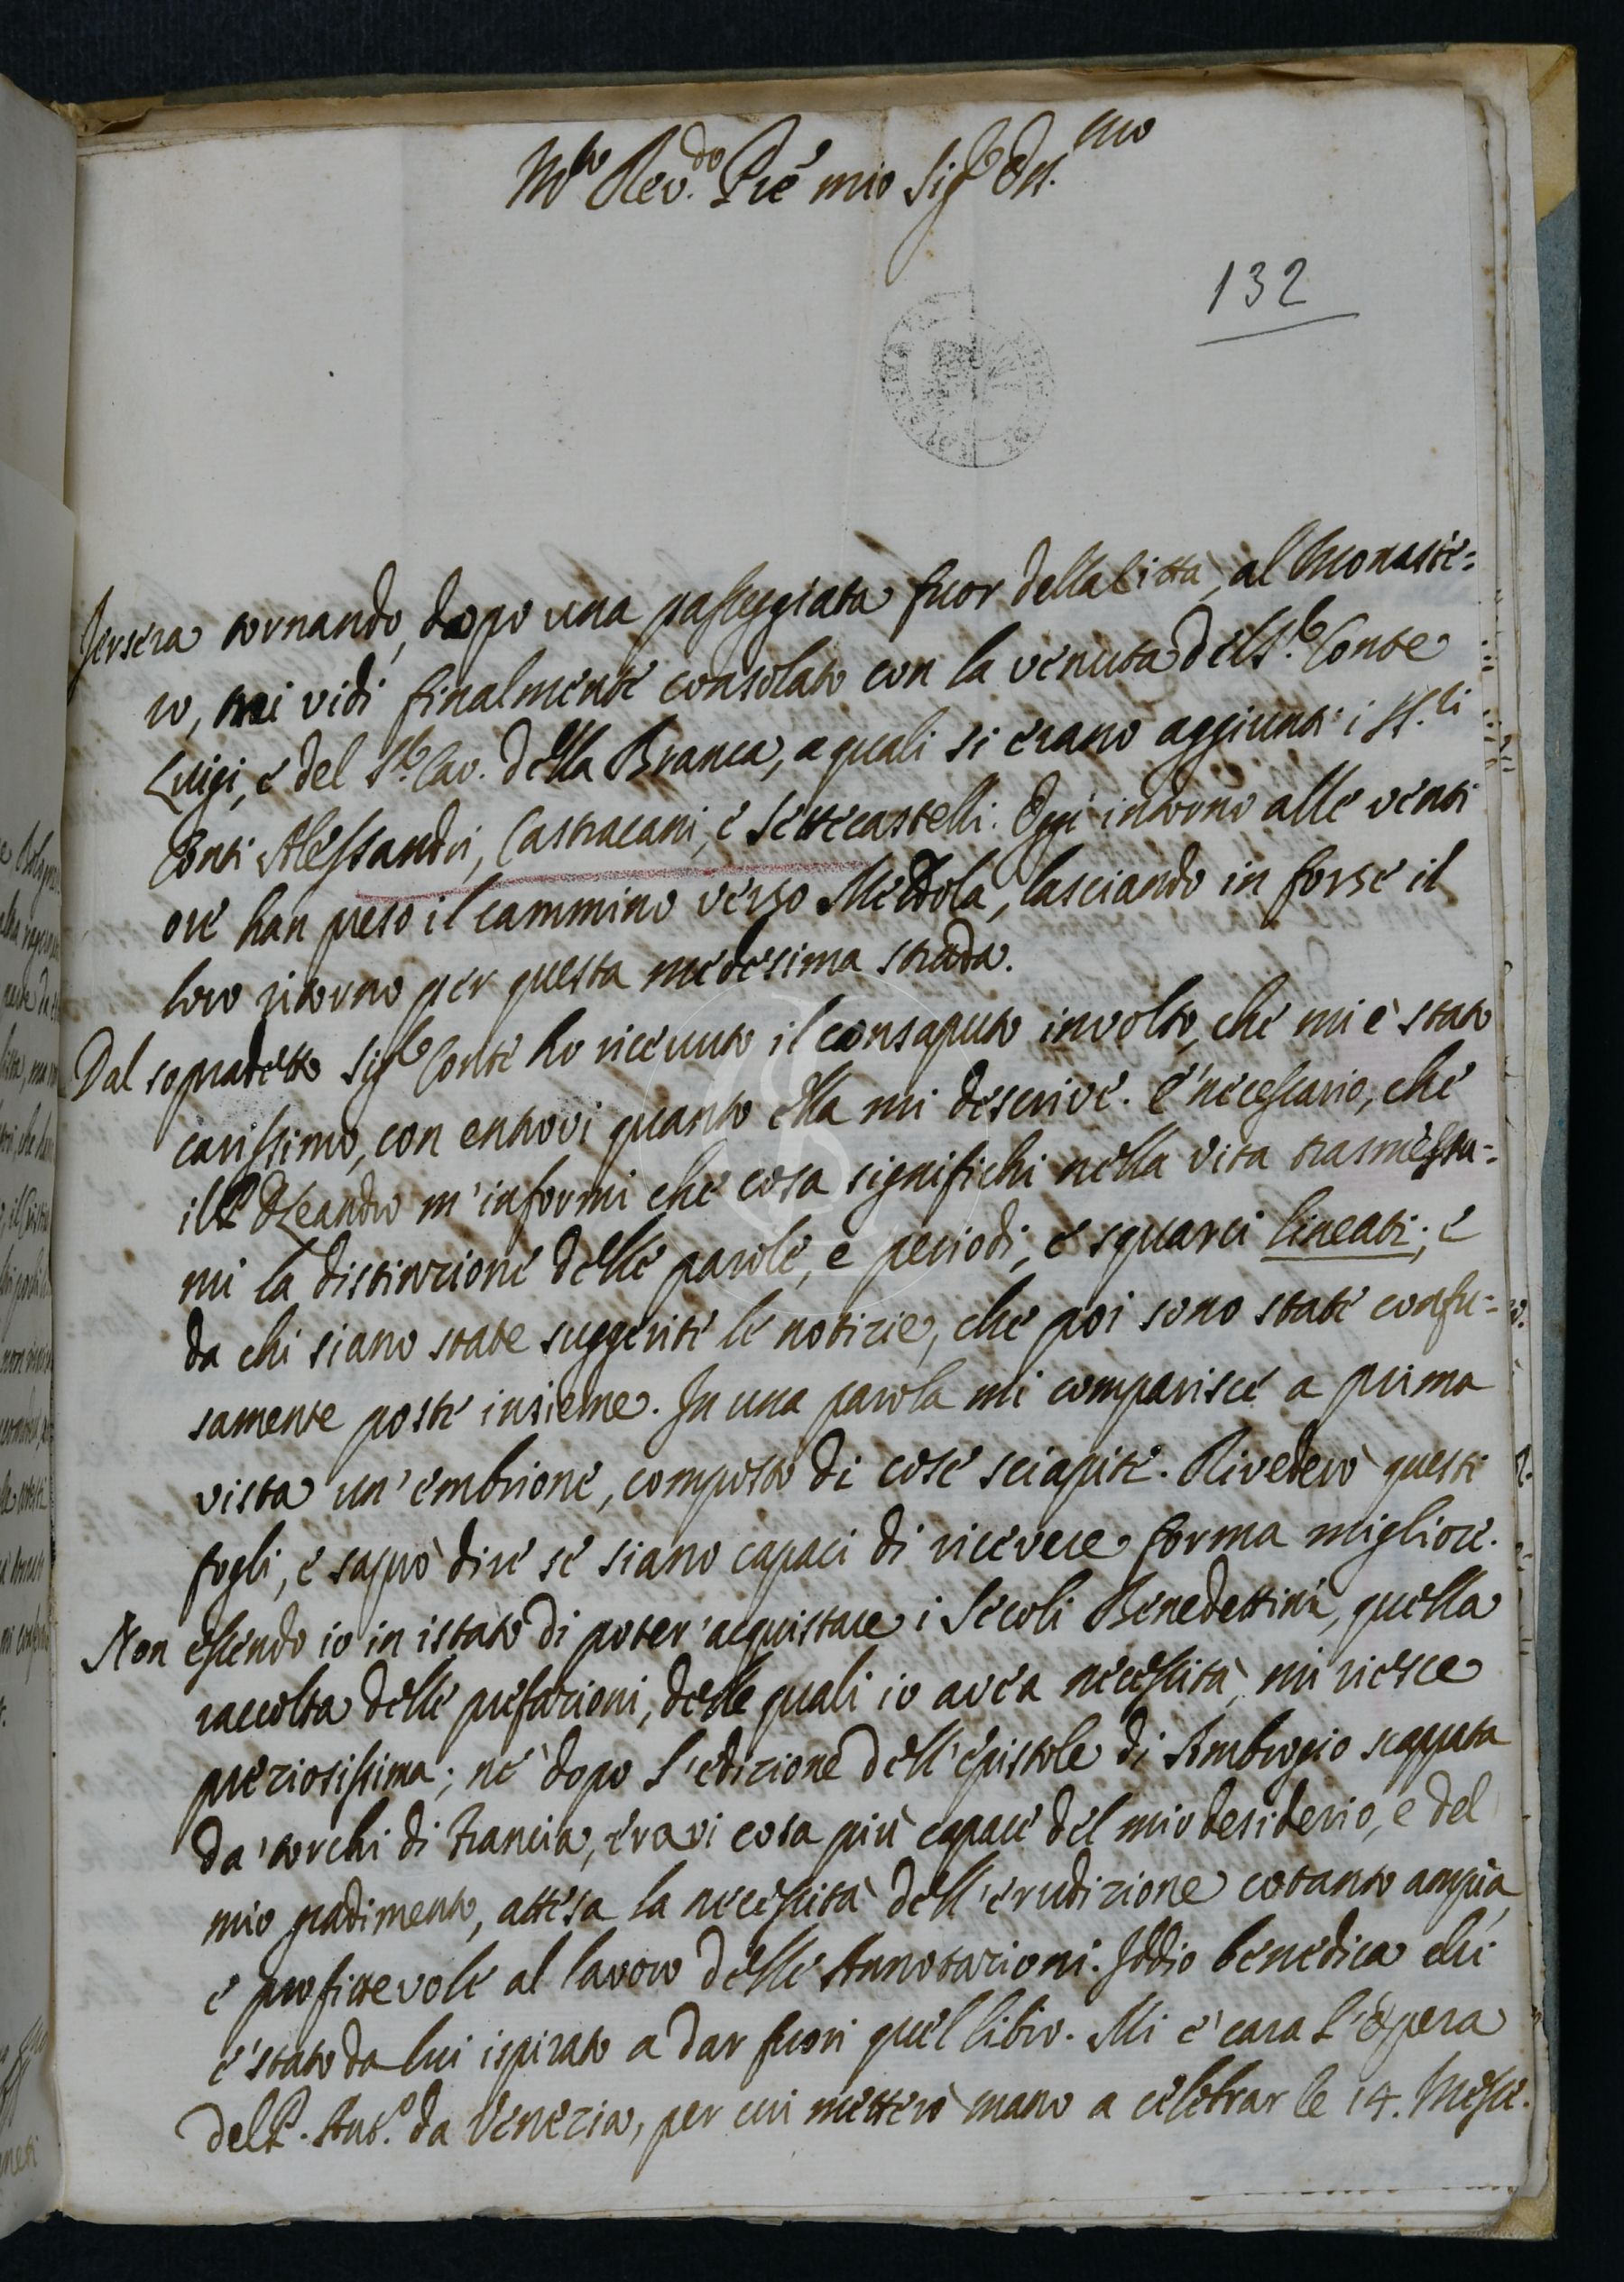 M.to Rev.do P're mio Sig.r Oss.mo
132
Jersera tornando, dopo una passeggiata fuor della Città, al Monaste=
ro, mi vidi finalmente consolato con la venuta del S.r Conte
Luigi, e del S.r Cav. della Branca, a quali si erano aggiunti i SS.ri
Conti Alessandri, Castracani, e Settecastelli. Oggi intorno alle venti
ore han preso il cammino verso Meldola, lasciando in forse il
loro ritorno per questa medesima strada.
Dal sopradetto Sig.r Conte ho ricevuto il consaputo involto, che mi è stato
carissimo, con entrovi quanto ella mi descrive. È necessario, che
il P. D. Leandro m'informi che cosa significhi nella vita trasmessa=
mi la distinzione delle parole, e periodi, e squarci lineati; e
da chi siano state suggerite le notizie, che poi sono state confu=
samente poste insieme. In una parola mi comparisce a prima
vista un'embrione, composto di cose sciapite. Rivederò questi
fogli, e saprò dire se siano capaci di ricevere forma migliore.
Non essendo io in istato di poter'acquistare i Secoli Benedettini, quella
raccolta delle prefazioni, delle quali io avea necessità, mi riesce
preziosissima; nè dopo l'edizione dell'epistole di Ambrogio scappata
da'torchi di Francia, eravi cosa più capace del mio desiderio, e del
mio gradimento, attesa la necessità dell'erudizione cotanto ampia,
e profittevole al lavoro delle Annotazioni. Iddio benedica chi
è stato da lui ispirato a dar fuori quel libro. Mi è cara l'opera
del P. Ant.o da Venezia, per cui metterò mano a celebrar le 14. Messe.